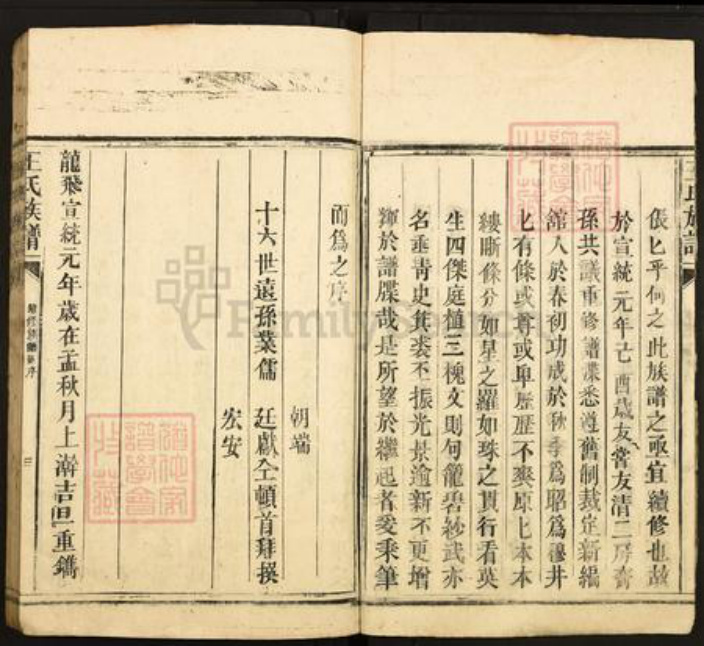 王氏族譜
倀匕乎何之此族譜之亟宜續修也茲
於宣統元年己酉歲友嘗友清二房齊
孫共議重修譜牒悉遵舊制裁定新編
館人於春初功成於秋季爲昭爲穆井
匕有條或尊或卑歷歷不爽原匕本本
縷晰條分如星之羅如珠之貫行看英
生四傑庭植三槐文則句籠碧紗武亦
名垂青史箕裘丕振光景逾新不更增
輝於譜牒哉是所望於繼起者爰秉筆
而爲之序
朝端
十六世遠孫業儒 廷獻仝頓首拜撰
宏安
龍飛宣統元年歲在孟秋月上澣吉旦重鐫
王氏族譜
序
三
FamilySearch